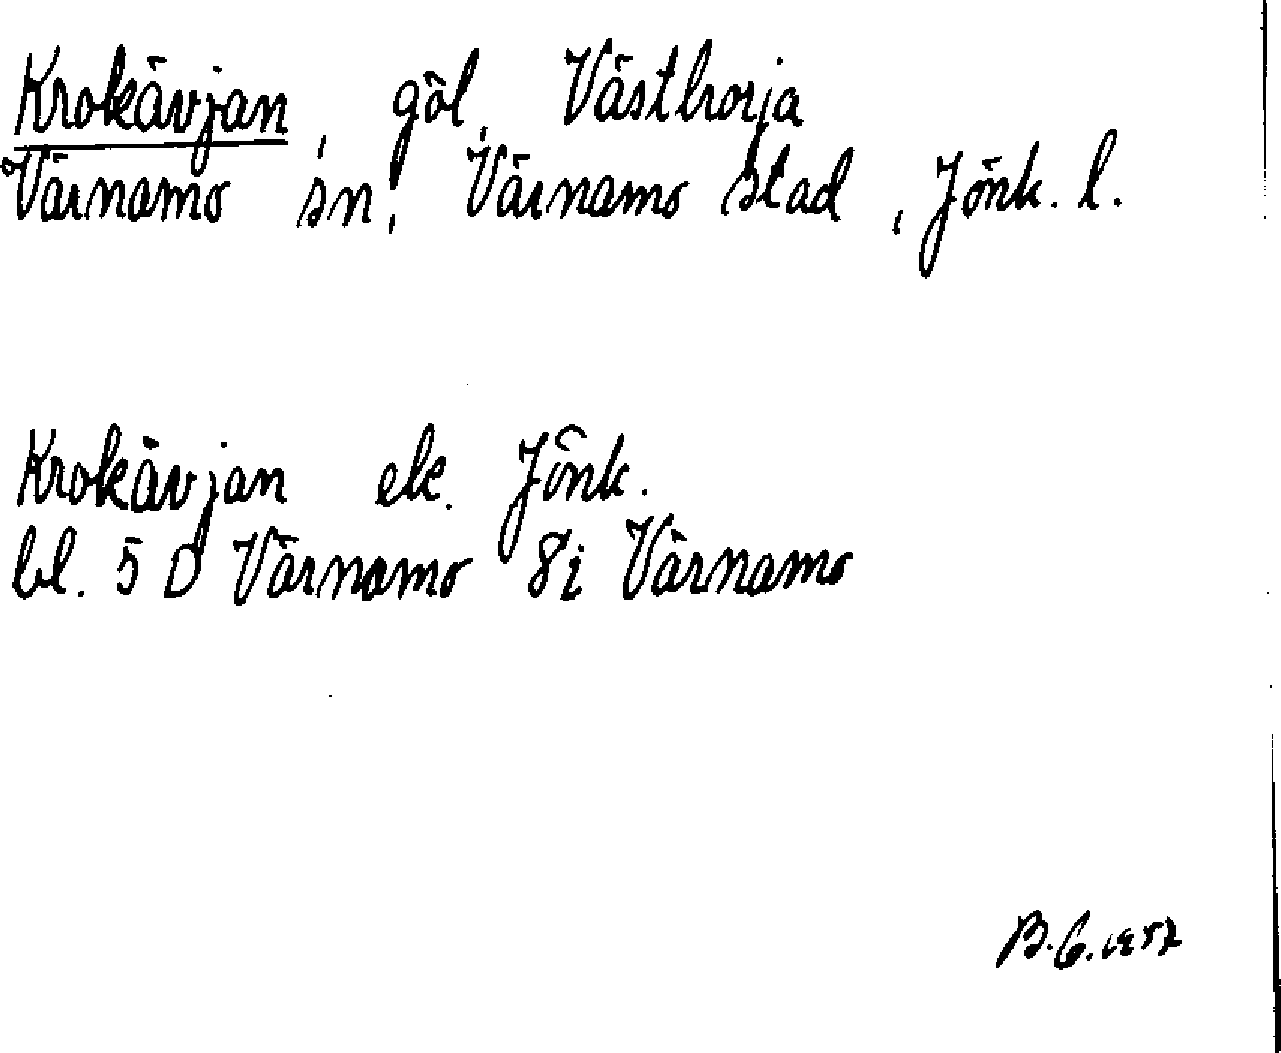 Krokävjan, göl, Västhorja
Värnamo sn, Värnamo stad, Jönk. l.
Krokävjan ek. Jönk.
bl. 5 D Värnamo 8i Värnamo
B.G. 1957